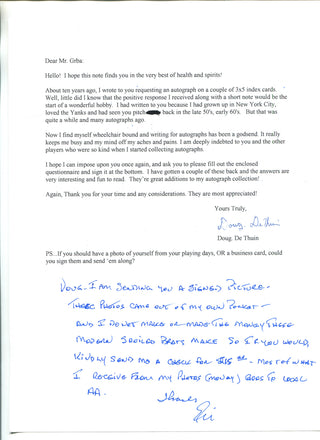 Dear Mr. Grba:
Hello! I hope this note finds you in the very best of health and spirits!
About ten years ago, I wrote to you requesting an autograph on a couple of 3x5 index cards.
Well, little did I know that the positive response I received along with a short note would be the
start of a wonderful hobby. I had written to you because I had grown up in New York City,
loved the Yanks and had seen you pitch back in the late 50's, early 60's. But that was
quite a while and many autographs ago.
Now I find myself wheelchair bound and writing for autographs has been a godsend. It really
keeps me busy and my mind off my aches and pains. I am deeply indebted to you and the other
players who were so kind when I started collecting autographs.
I hope I can impose upon you once again, and ask you to please fill out the enclosed
questionnaire and sign it at the bottom. I have gotten a couple of these back and the answers are
very interesting and fun to read. They're great additions to my autograph collection!
Again, Thank you for your time and any considerations. They are most appreciated!
Yours Truly,
Doug De Thuin
Doug. De Thuin
PS:.If you should have a photo of yourself from your playing days, OR a business card, could
you sign them and send 'em along?
DOUG - I AM SENDING YOU A SIGNED PICTURE -
THESE PHOTOS CAME OUT OF MY OWN POCKET -
AND I DO NOT MAKE OR MADE THE MONEY THESE
MODERN SPOILED BRATS MAKE SO IF YOU WOULD,
KINDLY SEND ME A CHECK FOR - MOST OF WHAT
I RECEIVE FROM MY PHOTOS (MONEY) GOES TO LOCAL
AA.
Thanks
Eli